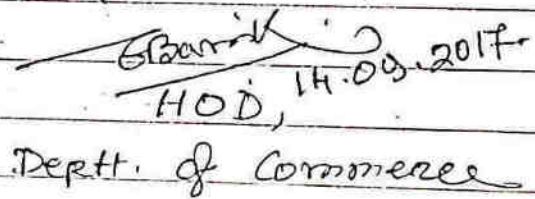 GBarik
HOD, 14.09.2017
Deptt. of Commerce